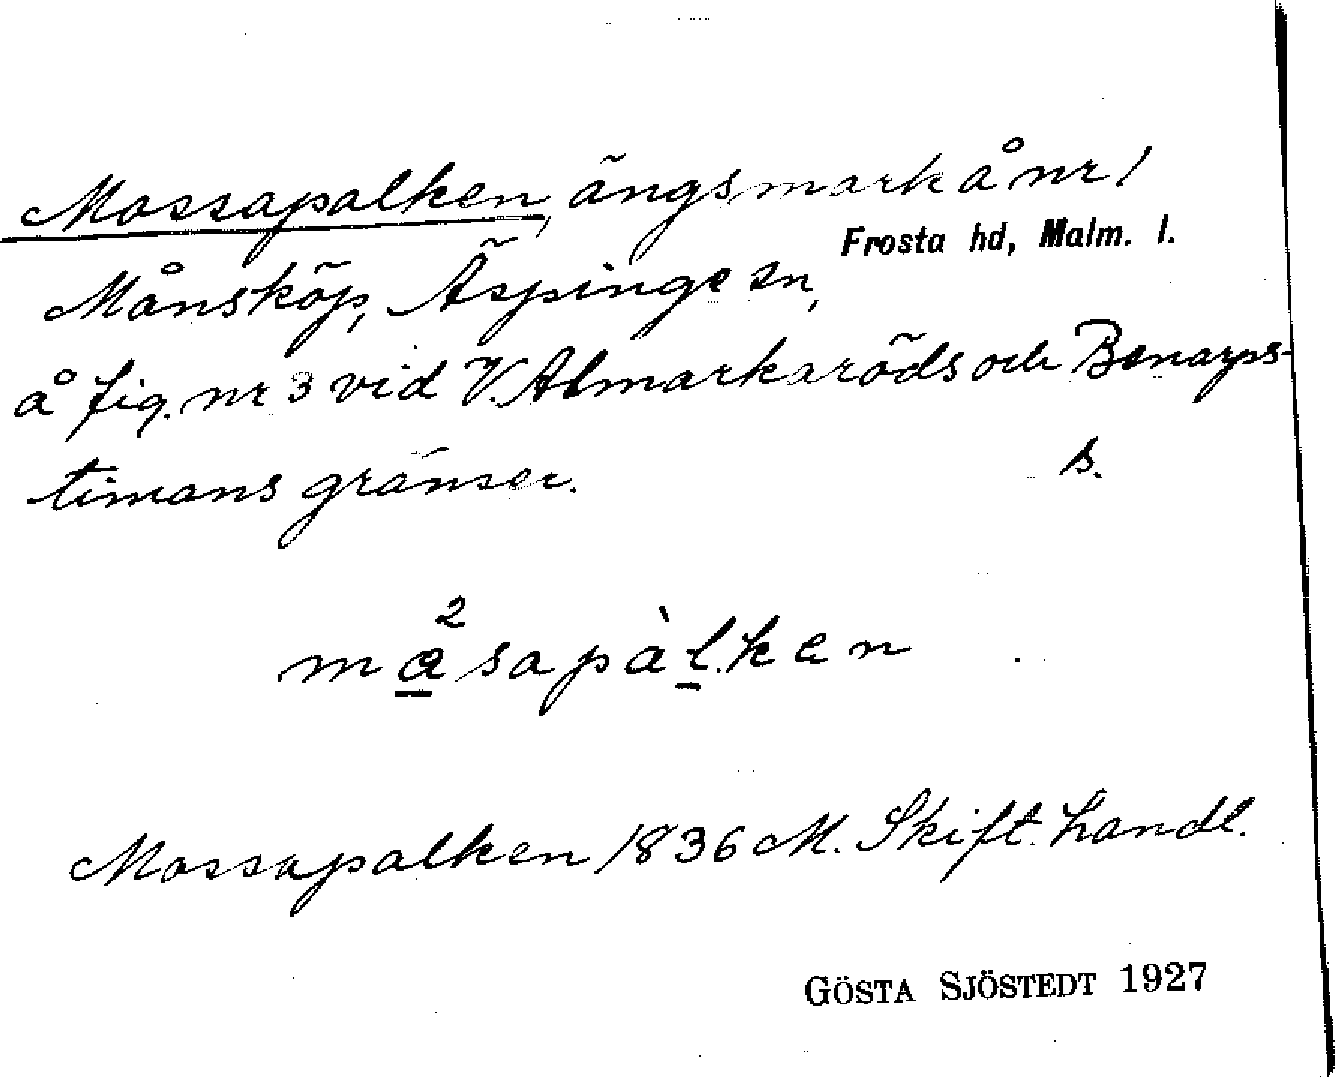 Mossapalken, ängsmark å nr 1
Frosta hd, Malm. l.
Månsköp, Äspinge sn,
å fig. nr 3 vid V. Almarkaröds och Benarps-
timans gränser. s.
må²sapàl.ken
Mossapalken 1836 M. Skift. handl.
GÖSTA SJÖSTEDT 1927